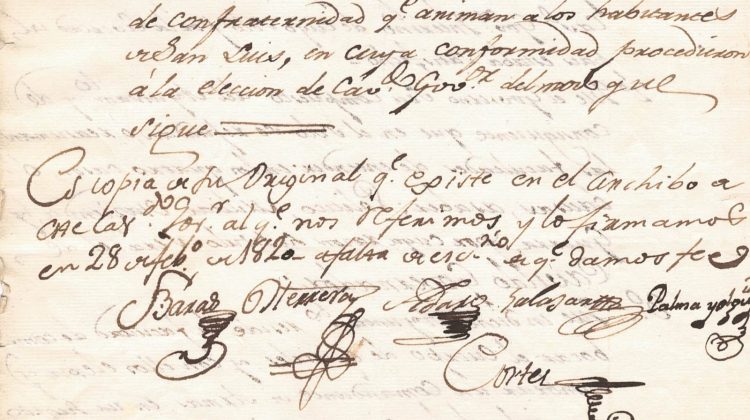 de confraternidad q.e animan a los habitantes
de San Luis, en cuya conformidad procedieron
á la eleccion de Cav.do Gov.or del modo que
sigue
Es copia de su Original q.e existe en el Archibo de
este Cav.do Gov.r al q.e nos referimos y lo firmamos
en 28 de feb.o de 1820 a falta de escr.no de q.e damos fe
Baras Herrera Adaro Salasar Palma y Olguin
Cortes